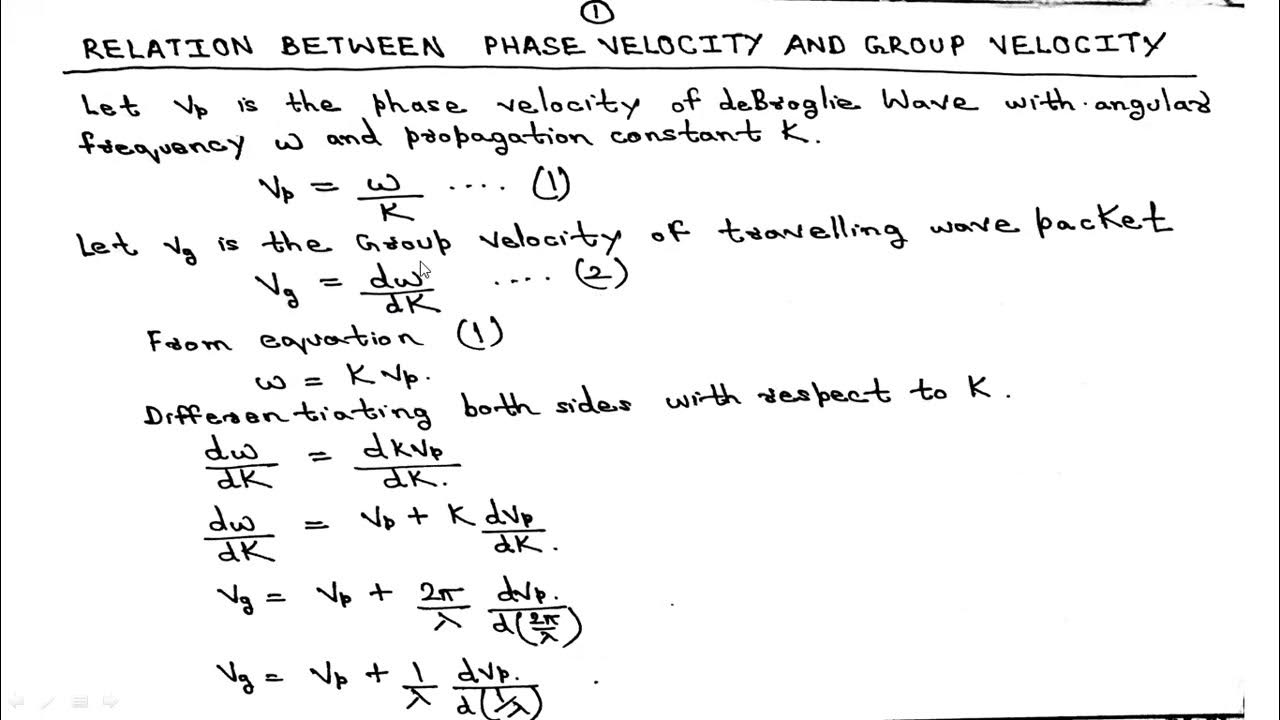 ①
RELATION BETWEEN PHASE VELOCITY AND GROUP VELOCITY
Let Vp is the phase velocity of deBroglie Wave with angular
frequency ω and propagation constant K.
Vp = ω/K .... (1)
Let Vg is the Group velocity of travelling wave packet
Vg = dω/dK .... (2)
From equation (1)
ω = K Vp.
Differentiating both sides with respect to K.
dω/dK = dKVp/dK.
dω/dK = Vp + K dVp/dK.
Vg = Vp + 2π/λ dVp./d(2π/λ)
Vg = Vp + 1/λ dVp./d(1/λ)